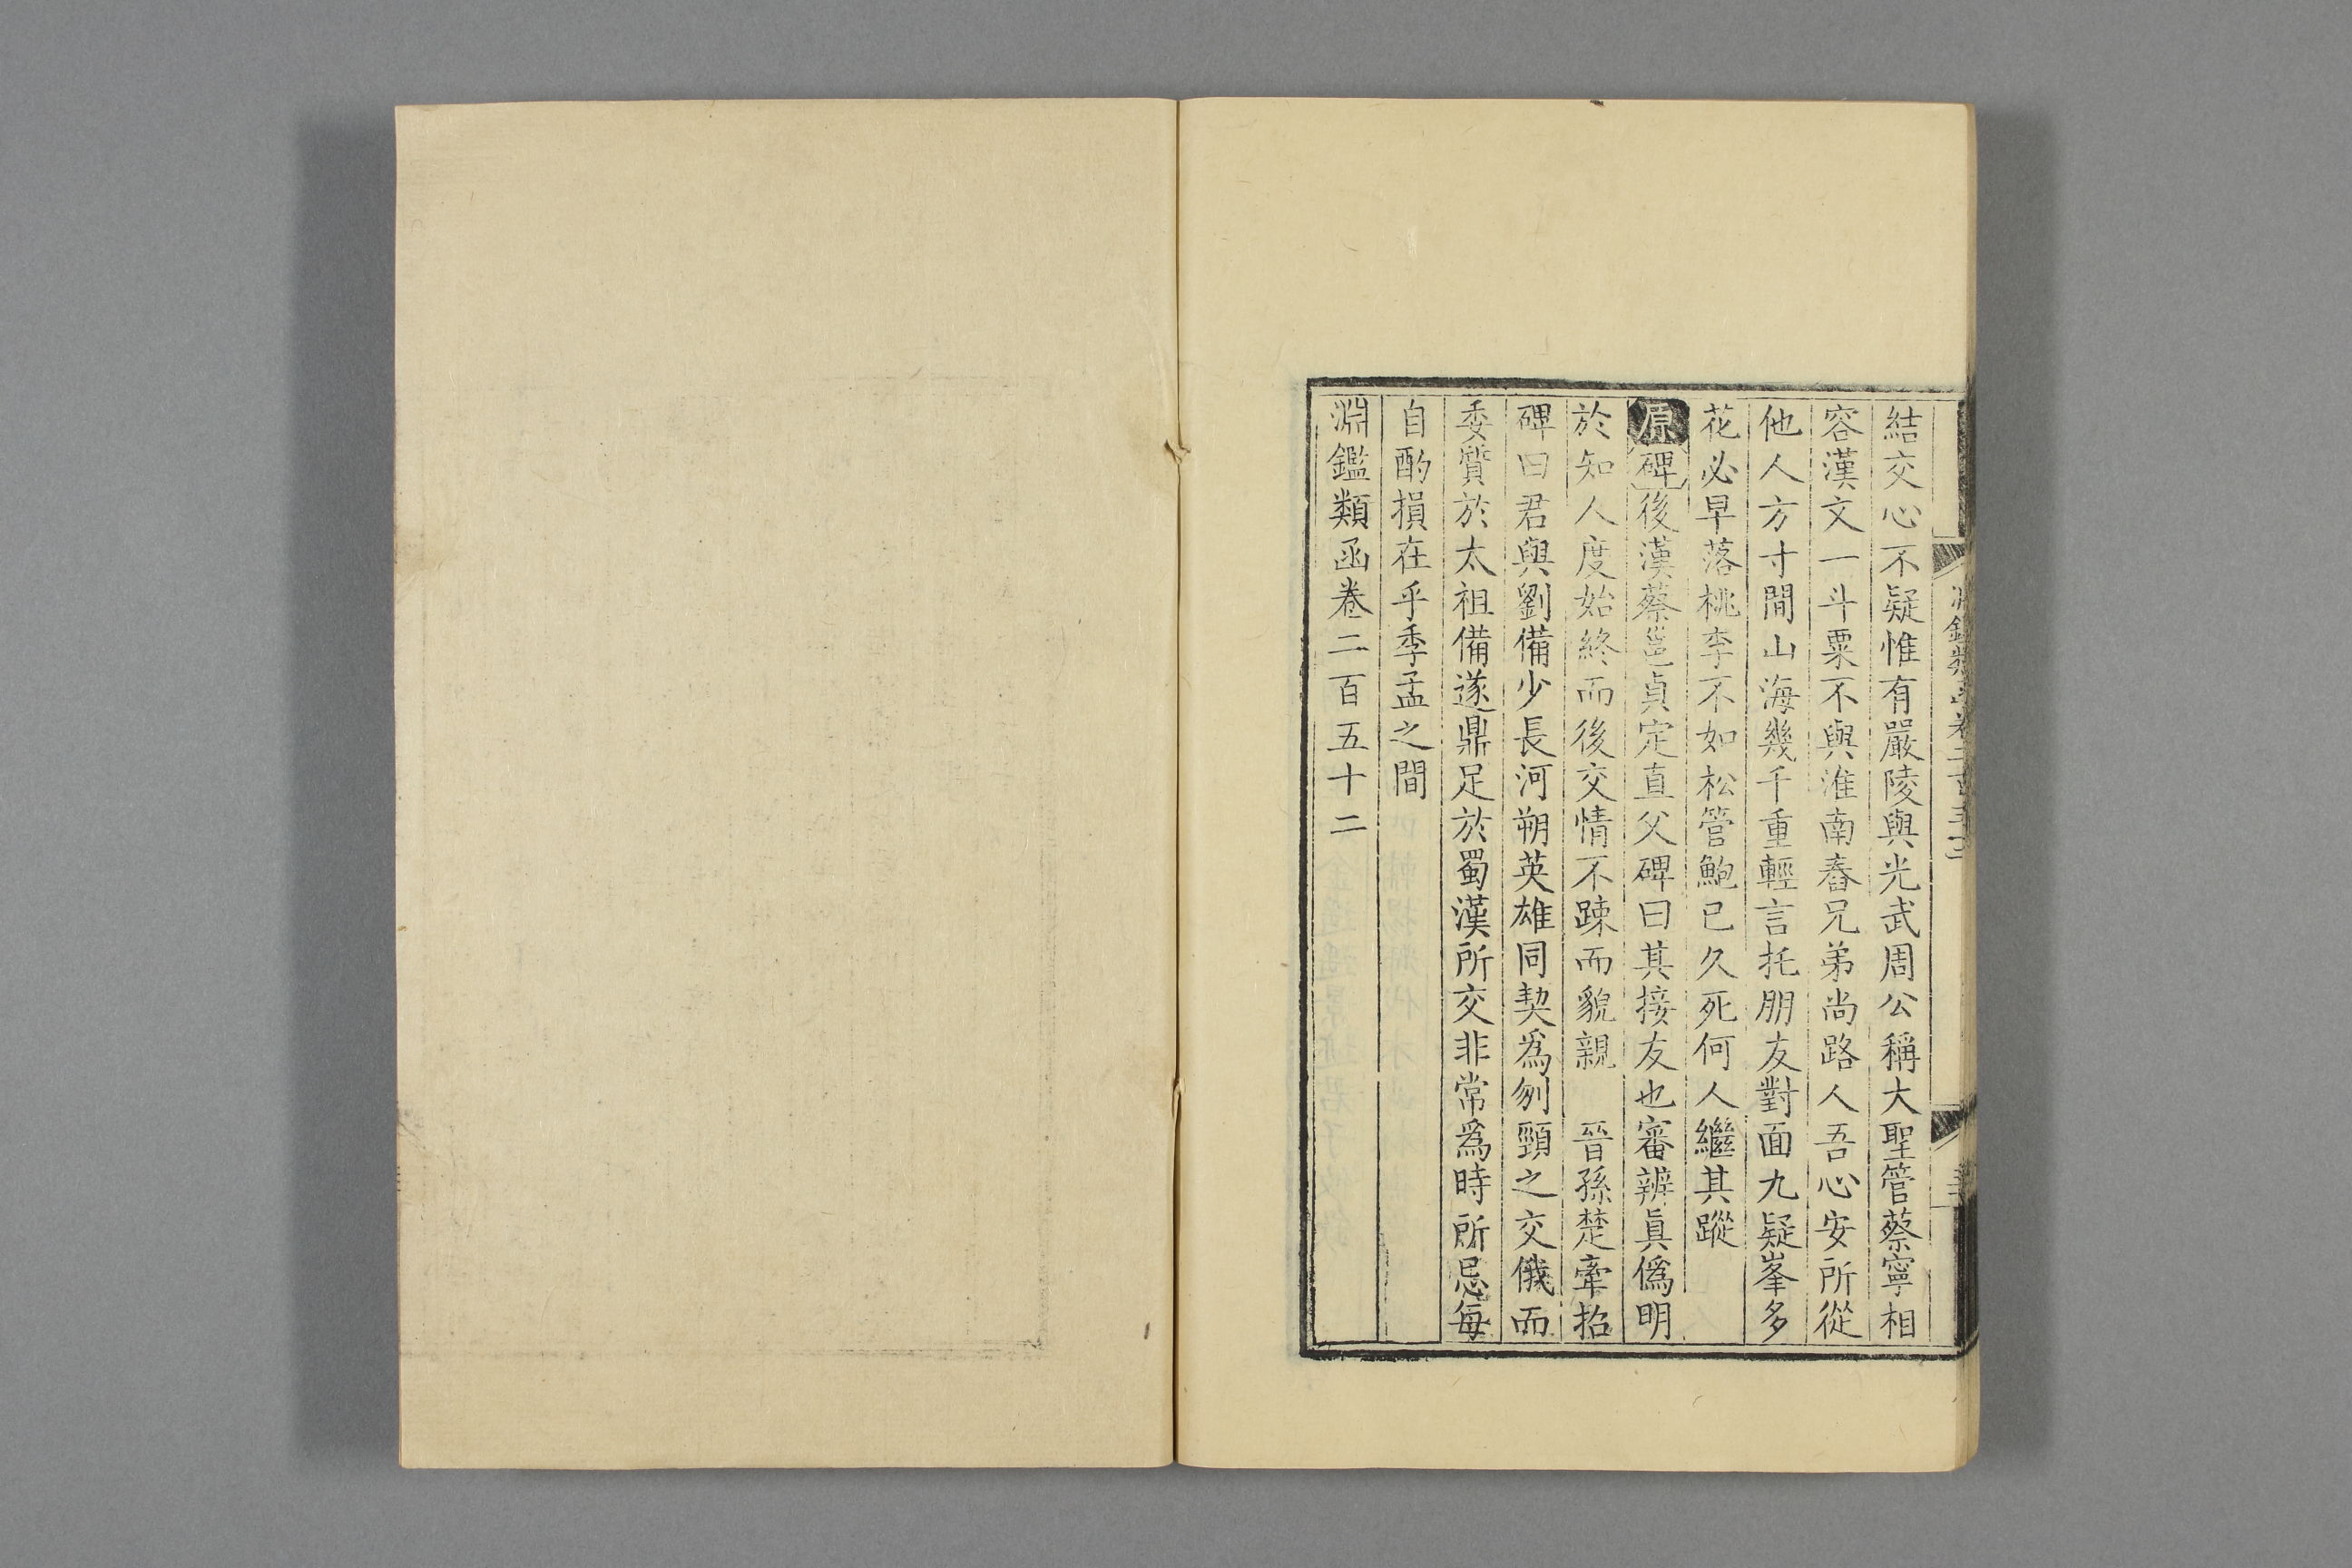 結交心不疑惟有嚴陵與光武周公稱大聖管蔡寧相
容漢文一斗粟不與淮南舂兄弟尚路人吾心安所從
他人方寸間山海幾千重輕言托朋友對面九疑峯多
花必早落桃李不如松管鮑已久死何人繼其蹤
原碑後漢蔡邕貞定直父碑曰其接友也審辨眞僞明
於知人度始終而後交情不踈而貌親 晉孫楚牽招
碑曰君與劉備少長河朔英雄同契爲刎頸之交俄而
委質於太祖備遂鼎足於蜀漢所交非常爲時所忌每
自酌損在乎季孟之間
淵鑑類函卷二百五十二